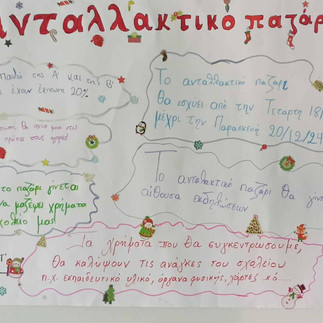 Ανταλλακτικό παζάρ
της Α' και της Β'
έχουν έκπτωση 20%
Το ανταλλακτικό παζάρι
θα ισχύει από την Τετάρτη 18/
μέχρι την Παρασκευή 20/12/24
το παζάρι γίνεται
να μαζέψει χρήματα
σχολείο μας!
Το ανταλακτικό παζάρι θα γίν
αίθουσα εκδηλώσεων
Τα χρήματα που θα συγκεντρώσουμε,
θα καλύψουν τις ανάγκες του σχολείου
π.χ. εκπαιδευτικό υλικό, όργανα φυσικής, χάρτες κ.ά.